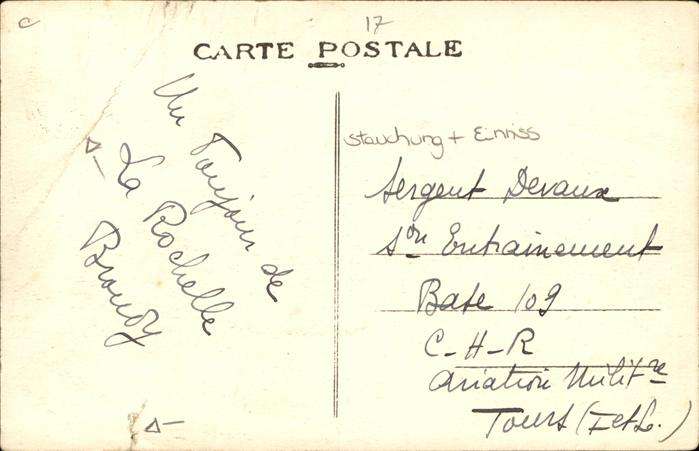 C
17
CARTE POSTALE
Un Tonjour de
La Rochelle
Stauchung + Einriss
Sergent Devaux
Son Entrainement
Base 109
C-H-R
Aviation Milit re
Tours (I et L.)